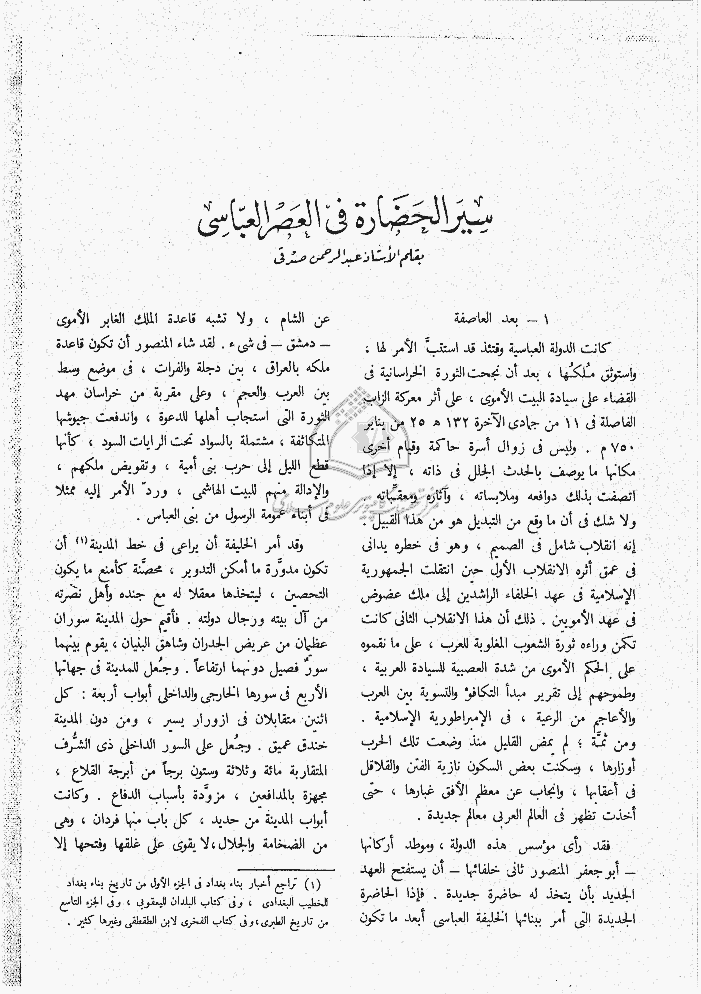 سِيَر الحَضَارة فى العَصْر العبّاسى
بقلم الأستاذ عبد الرحمن صدقى
١ – بعد العاصفة
كانت الدولة العباسية وقتئذ قد استتبَّ الأمر لها ،
واستوثق مُلكُها ، بعد أن نجحت الثورة الخراسانية فى
القضاء على سيادة البيت الأموى ، على أثر معركة الزاب
الفاصلة فى ١١ من جمادى الآخرة ١٣٢ ه ٢٥ من يناير
٧٥٠ م . وليس فى زوال أسرة حاكمة وقيام أخرى
مكانها ما يوصف بالحدث الجلل فى ذاته ، إلا إذا
اتصفت بذلك دوافعه وملابساته ، وآثاره ومعقباته .
ولا شك فى أن ما وقع من التبديل هو من هذا القبيل .
إنه انقلاب شامل فى الصميم ، وهو فى خطره يدانى
فى عمق أثره الانقلاب الأول حين انتقلت الجمهورية
الإسلامية فى عهد الخلفاء الراشدين إلى ملك عضوض
فى عهد الأمويين . ذلك أن هذا الانقلاب الثانى كانت
تكمن وراءه ثورة الشعوب المغلوبة للعرب ، على ما نقموه
على الحكم الأموى من شدة العصبية للسيادة العربية ،
وطموحهم إلى تقرير مبدأ التكافؤ والتسوية بين العرب
والأعاجم من الرعية ، فى الإمبراطورية الإسلامية .
ومن ثمَّة ؛ لم يمض القليل منذ وضعت تلك الحرب
أوزارها ، وسكنت بعض السكون نازية الفتن والقلاقل
فى أعقابها ، وانجاب عن معظم الأفق غبارها ، حتى
أخذت تظهر فى العالم العربى معالم جديدة .
فقد رأى مؤسس هذه الدولة ، وموطد أركانها
– أبو جعفر المنصور ثانى خلفائها – أن يستفتح العهد
الجديد بأن يتخذ له حاضرة جديدة . فإذا الحاضرة
الجديدة التى أمر ببنائها الخليفة العباسى أبعد ما تكون
عن الشام ، ولا تشبه قاعدة الملك الغابر الأموى
– دمشق – فى شىء . لقد شاء المنصور أن تكون قاعدة
ملكه بالعراق ، بين دجلة والفرات ، فى موضع وسط
بين العرب والعجم ، وعلى مقربة من خراسان مهد
الثورة التى استجاب أهلها للدعوة ، واندفعت جيوشها
المتكاثفة ، مشتملة بالسواد تحت الرايات السود ، كأنها
قطع الليل إلى حرب بنى أمية ، وتقويض ملكهم ،
والإدالة منهم للبيت الهاشمى ، وردّ الأمر إليه ممثلا
فى أبناء عمومة الرسول من بنى العباس .
وقد أمر الخليفة أن يراعى فى خط المدينة (١) أن
تكون مدوَّرة ما أمكن التدوير ، محصَّنة كأمنع ما يكون
التحصين ، ليتخذها معقلا له مع جنده وأهل نصْرته
من آل بيته ورجال دولته . فأقيم حول المدينة سوران
عظيمان من عريض الجدران وشاهق البنيان ، يقوم بينهما
سورٌ فصيل دونهما ارتفاعاً . وجُعل للمدينة فى جهاتها
الأربع فى سورها الخارجى والداخلى أبواب أربعة : كل
اثنين متقابلان فى ازورار يسير ، ومن دون المدينة
خندق عميق . وجُعل على السور الداخلى ذى الشُّرف
المتقاربة مائة وثلاثة وستون برجاً من أبرجة القلاع ،
مجهزة بالمدافعين ، مزودَّة بأسباب الدفاع . وكانت
أبواب المدينة من حديد ، كل باب منها فردان ، وهى
من الضخامة والجلال، لا يقوى على غلقها وفتحها إلا
(١) تراجع أخبار بناء بغداد فى الجزء الأول من تاريخ بناء بغداد
للخطيب البغدادى ، وفى كتاب البلدان لليعقوبى ، وفى الجزء التاسع
من تاريخ الطبرى، وفى كتاب الفخرى لابن الطقطقى وغيرها كثير .